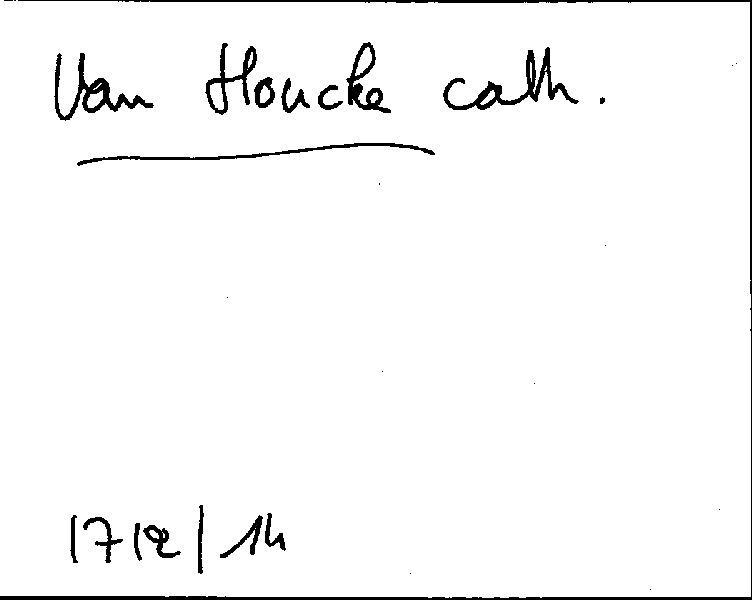 Van Houcke cath.
17/2/14